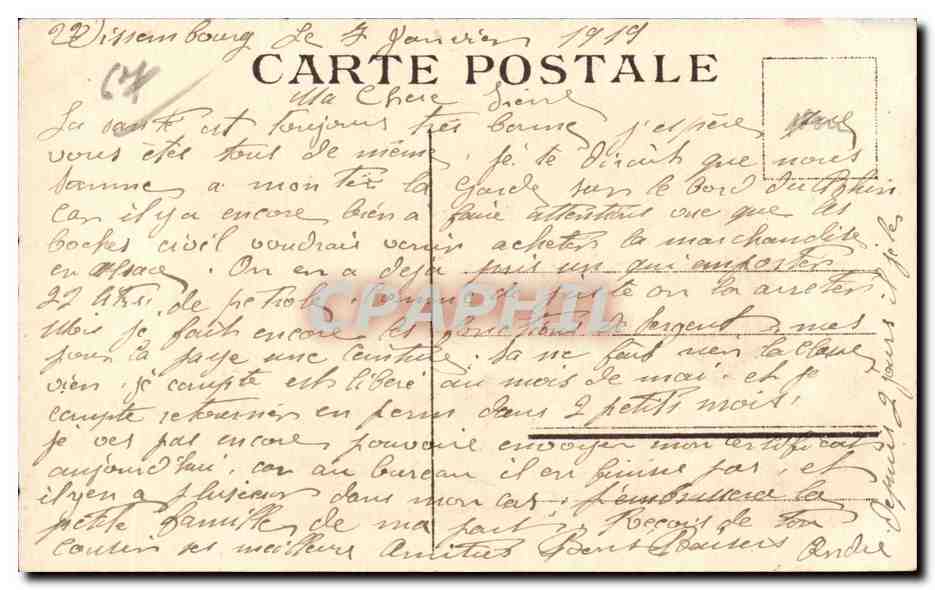 Wissembourg Le 7 Janvier 1919
CARTE POSTALE
67
Ma Chere
La santé est toujours très bonne, j'espère que
vous êtes tous de même. Je te dirait que nous
somme a monter la Garde sur le bord du Rhin
car il y a encore bien a faire attention vue que les
boches civil voudrais venir acheter la marchandise
en alsace. On en a deja pris un qui emporter
22 litres de petrole, comme de juste on la arreter
Mois je fait encore les fonctions de Sergent mes
pour la paye une ceinture. Sa ne fait rien la classe
vien. je compte est libéré au mois de mai. et je
compte retourner en perm dans 2 petits mois,
je ves pas encore pouvoir envoyer mon certificat
aujourd'hui, car au bureau il en finine pas, et
il y en a plusieur dans mon cas. J'embrassera la
petite famille de ma part. Reçois de ton
cousin ses meilleure Amitiés Bons Baisers
André
depuis 2 jours
CPAPHIL